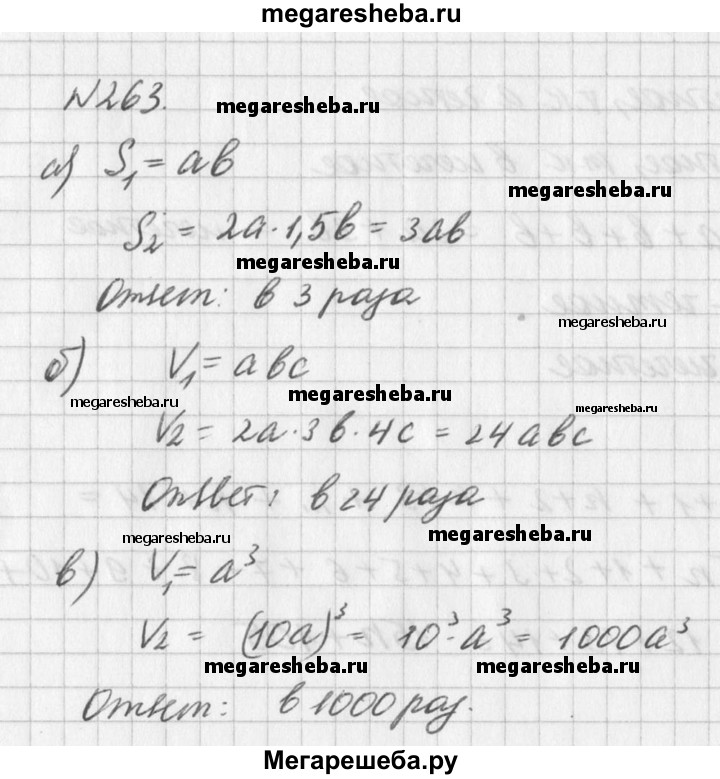 megaresheba.ru
№263.
megaresheba.ru
а) S₁ = ab
megaresheba.ru
S₂ = 2a · 1,5b = 3ab
megaresheba.ru
Ответ: в 3 раза
megaresheba.ru
б) V₁ = abc
megaresheba.ru
megaresheba.ru
megaresheba.ru
V₂ = 2a · 3b · 4c = 24abc
Ответ: в 24 раза
megaresheba.ru
megaresheba.ru
в) V₁ = a³
V₂ = (10a)³ = 10³ · a³ = 1000a³
megaresheba.ru
megaresheba.ru
Ответ: в 1000 раз.
Мегарешеба.ру